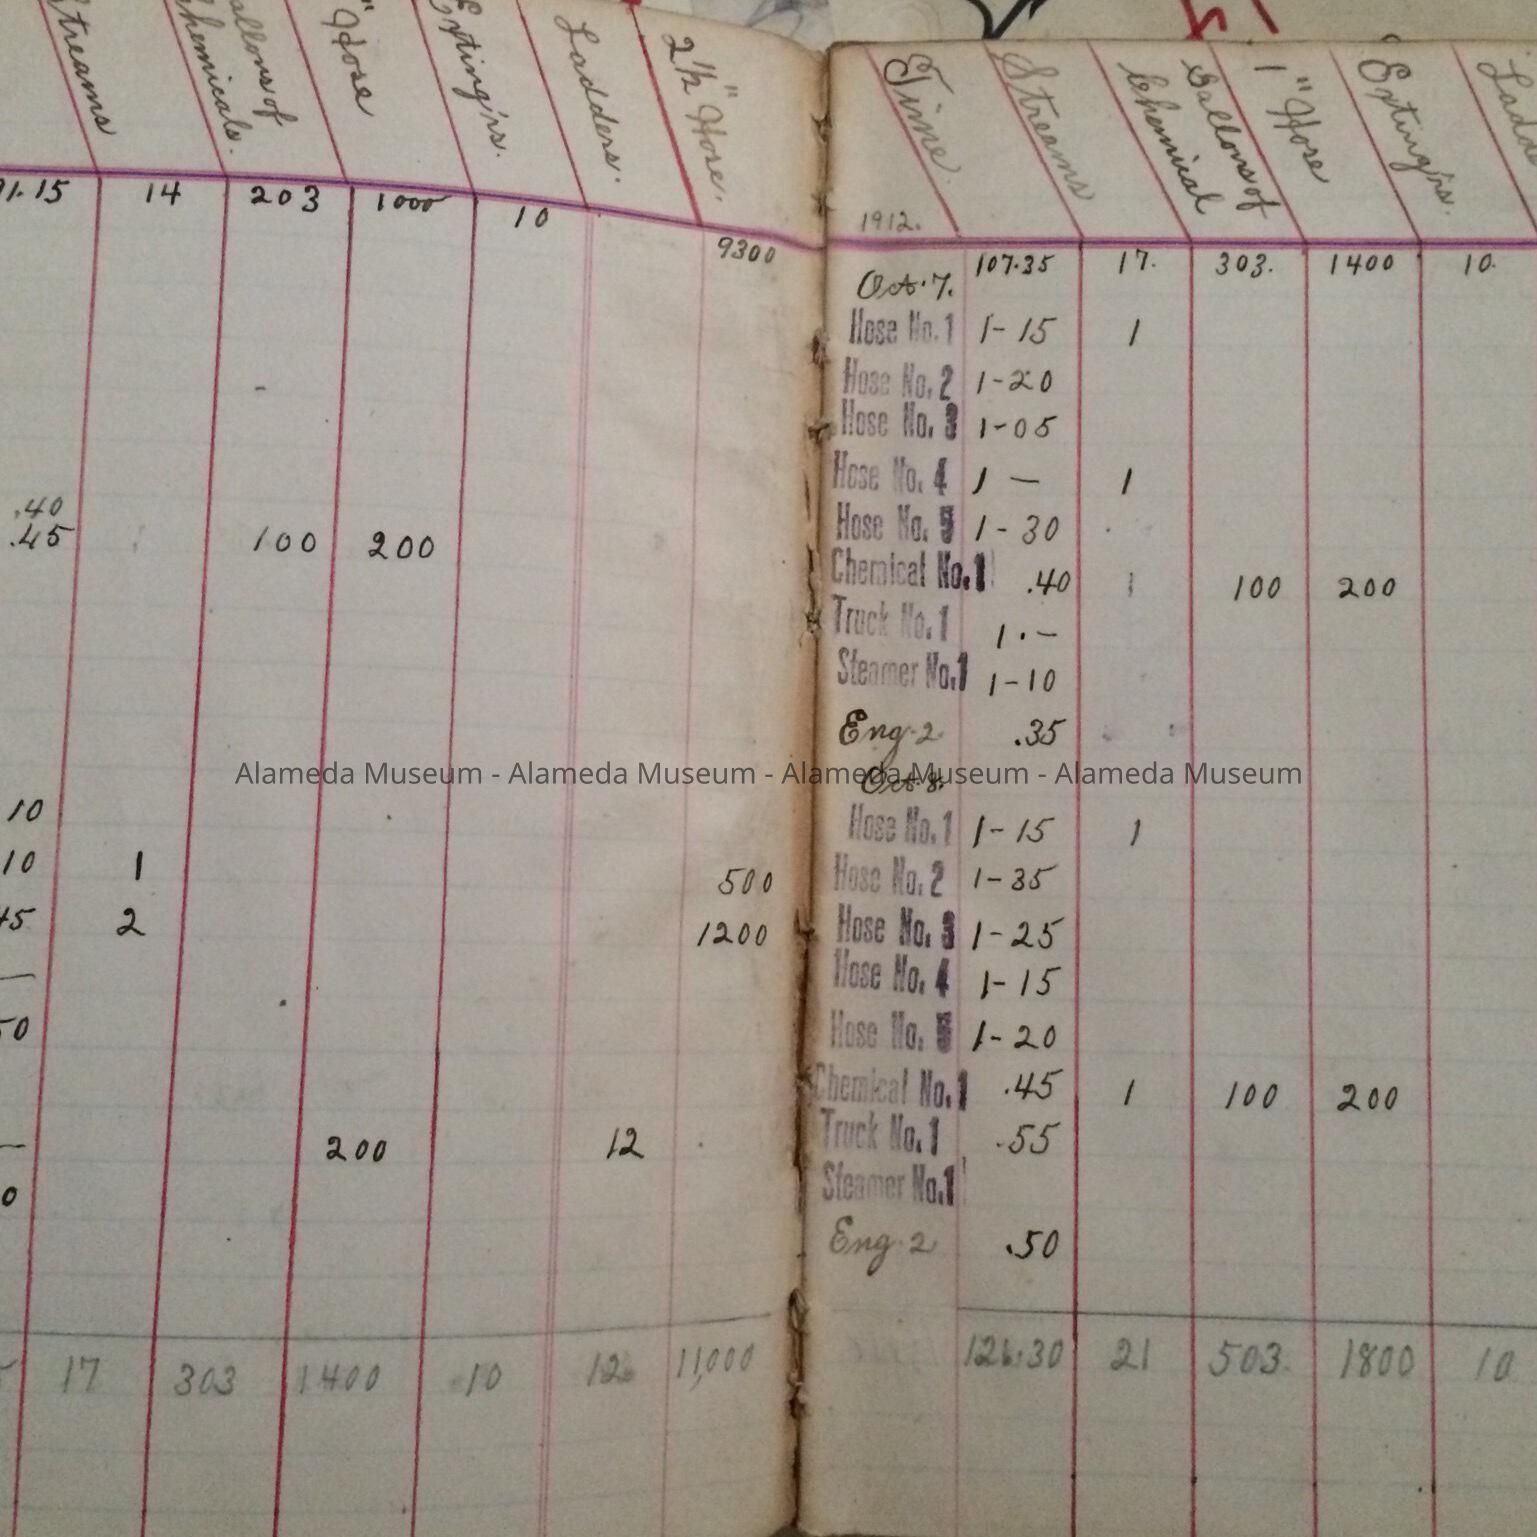 Streams Gallons of Chemicals. 1" Hose Exting'rs. Ladders. 2½" Hose.
91.15 14 203 1000 10
9300
.40
.45 1 100 200
10
10 1 500
45 2 1200
—
50
— 200 12
0
17 303 1400 10 12 11,000
Time. Streams Gallons of Chemical 1" Hose Exting'rs. Ladde
1912.
107.35 17. 303. 1400 10.
Oct. 7.
Hose No. 1 1-15 1
Hose No. 2 1-20
Hose No. 3 1-05
Hose No. 4 1 — 1
Hose No. 5 1-30
Chemical No. 1 .40 1 100 200
Truck No. 1 1.—
Steamer No. 1 1-10
Eng. 2. .35
Alameda Museum - Alameda Museum - Alameda Museum - Alameda Museum
Oct. 8.
Hose No. 1 1-15 1
Hose No. 2 1-35
Hose No. 3 1-25
Hose No. 4 1-15
Hose No. 5 1-20
Chemical No. 1 .45 1 100 200
Truck No. 1 .55
Steamer No. 1
Eng. 2 .50
126.30 21 503. 1800 10